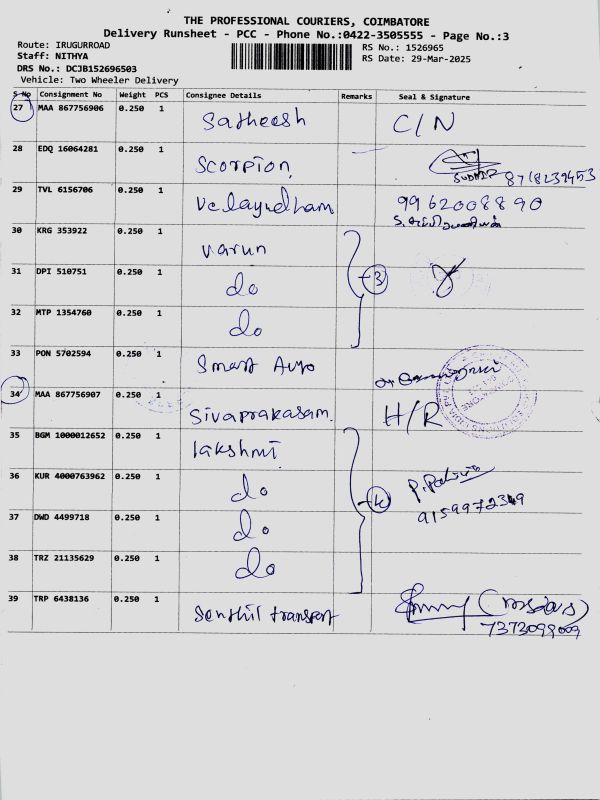 THE PROFESSIONAL COURIERS, COIMBATORE
Delivery Runsheet - PCC - Phone No.:0422-3505555 - Page No.:3
Route: IRUGURROAD
Staff: NITHYA
DRS No.: DCJB152696503
Vehicle: Two Wheeler Delivery
RS No.: 1526965
RS Date: 29-Mar-2025
S No Consignment No Weight PCS Consignee Details Remarks Seal & Signature
27 MAA 867756906 0.250 1 Satheesh C/N
28 EDQ 16064281 0.250 1 Scorpion
SUDHIR 8718239453
29 TVL 6156706 0.250 1 Velayudham 9962008890
30 KRG 353922 0.250 1 varun
31 DPI 510751 0.250 1 do 3
32 MTP 1354760 0.250 1 do
33 PON 5702594 0.250 1 Smart Auto
34 MAA 867756907 0.250 1 Sivaprakasam H/R
35 BGM 1000012652 0.250 1 lakshmi
36 KUR 4000763962 0.250 1 do 4
9159972349
37 DWD 4499718 0.250 1 do
38 TRZ 21135629 0.250 1 do
39 TRP 6438136 0.250 1 Senthil transport
7373099009